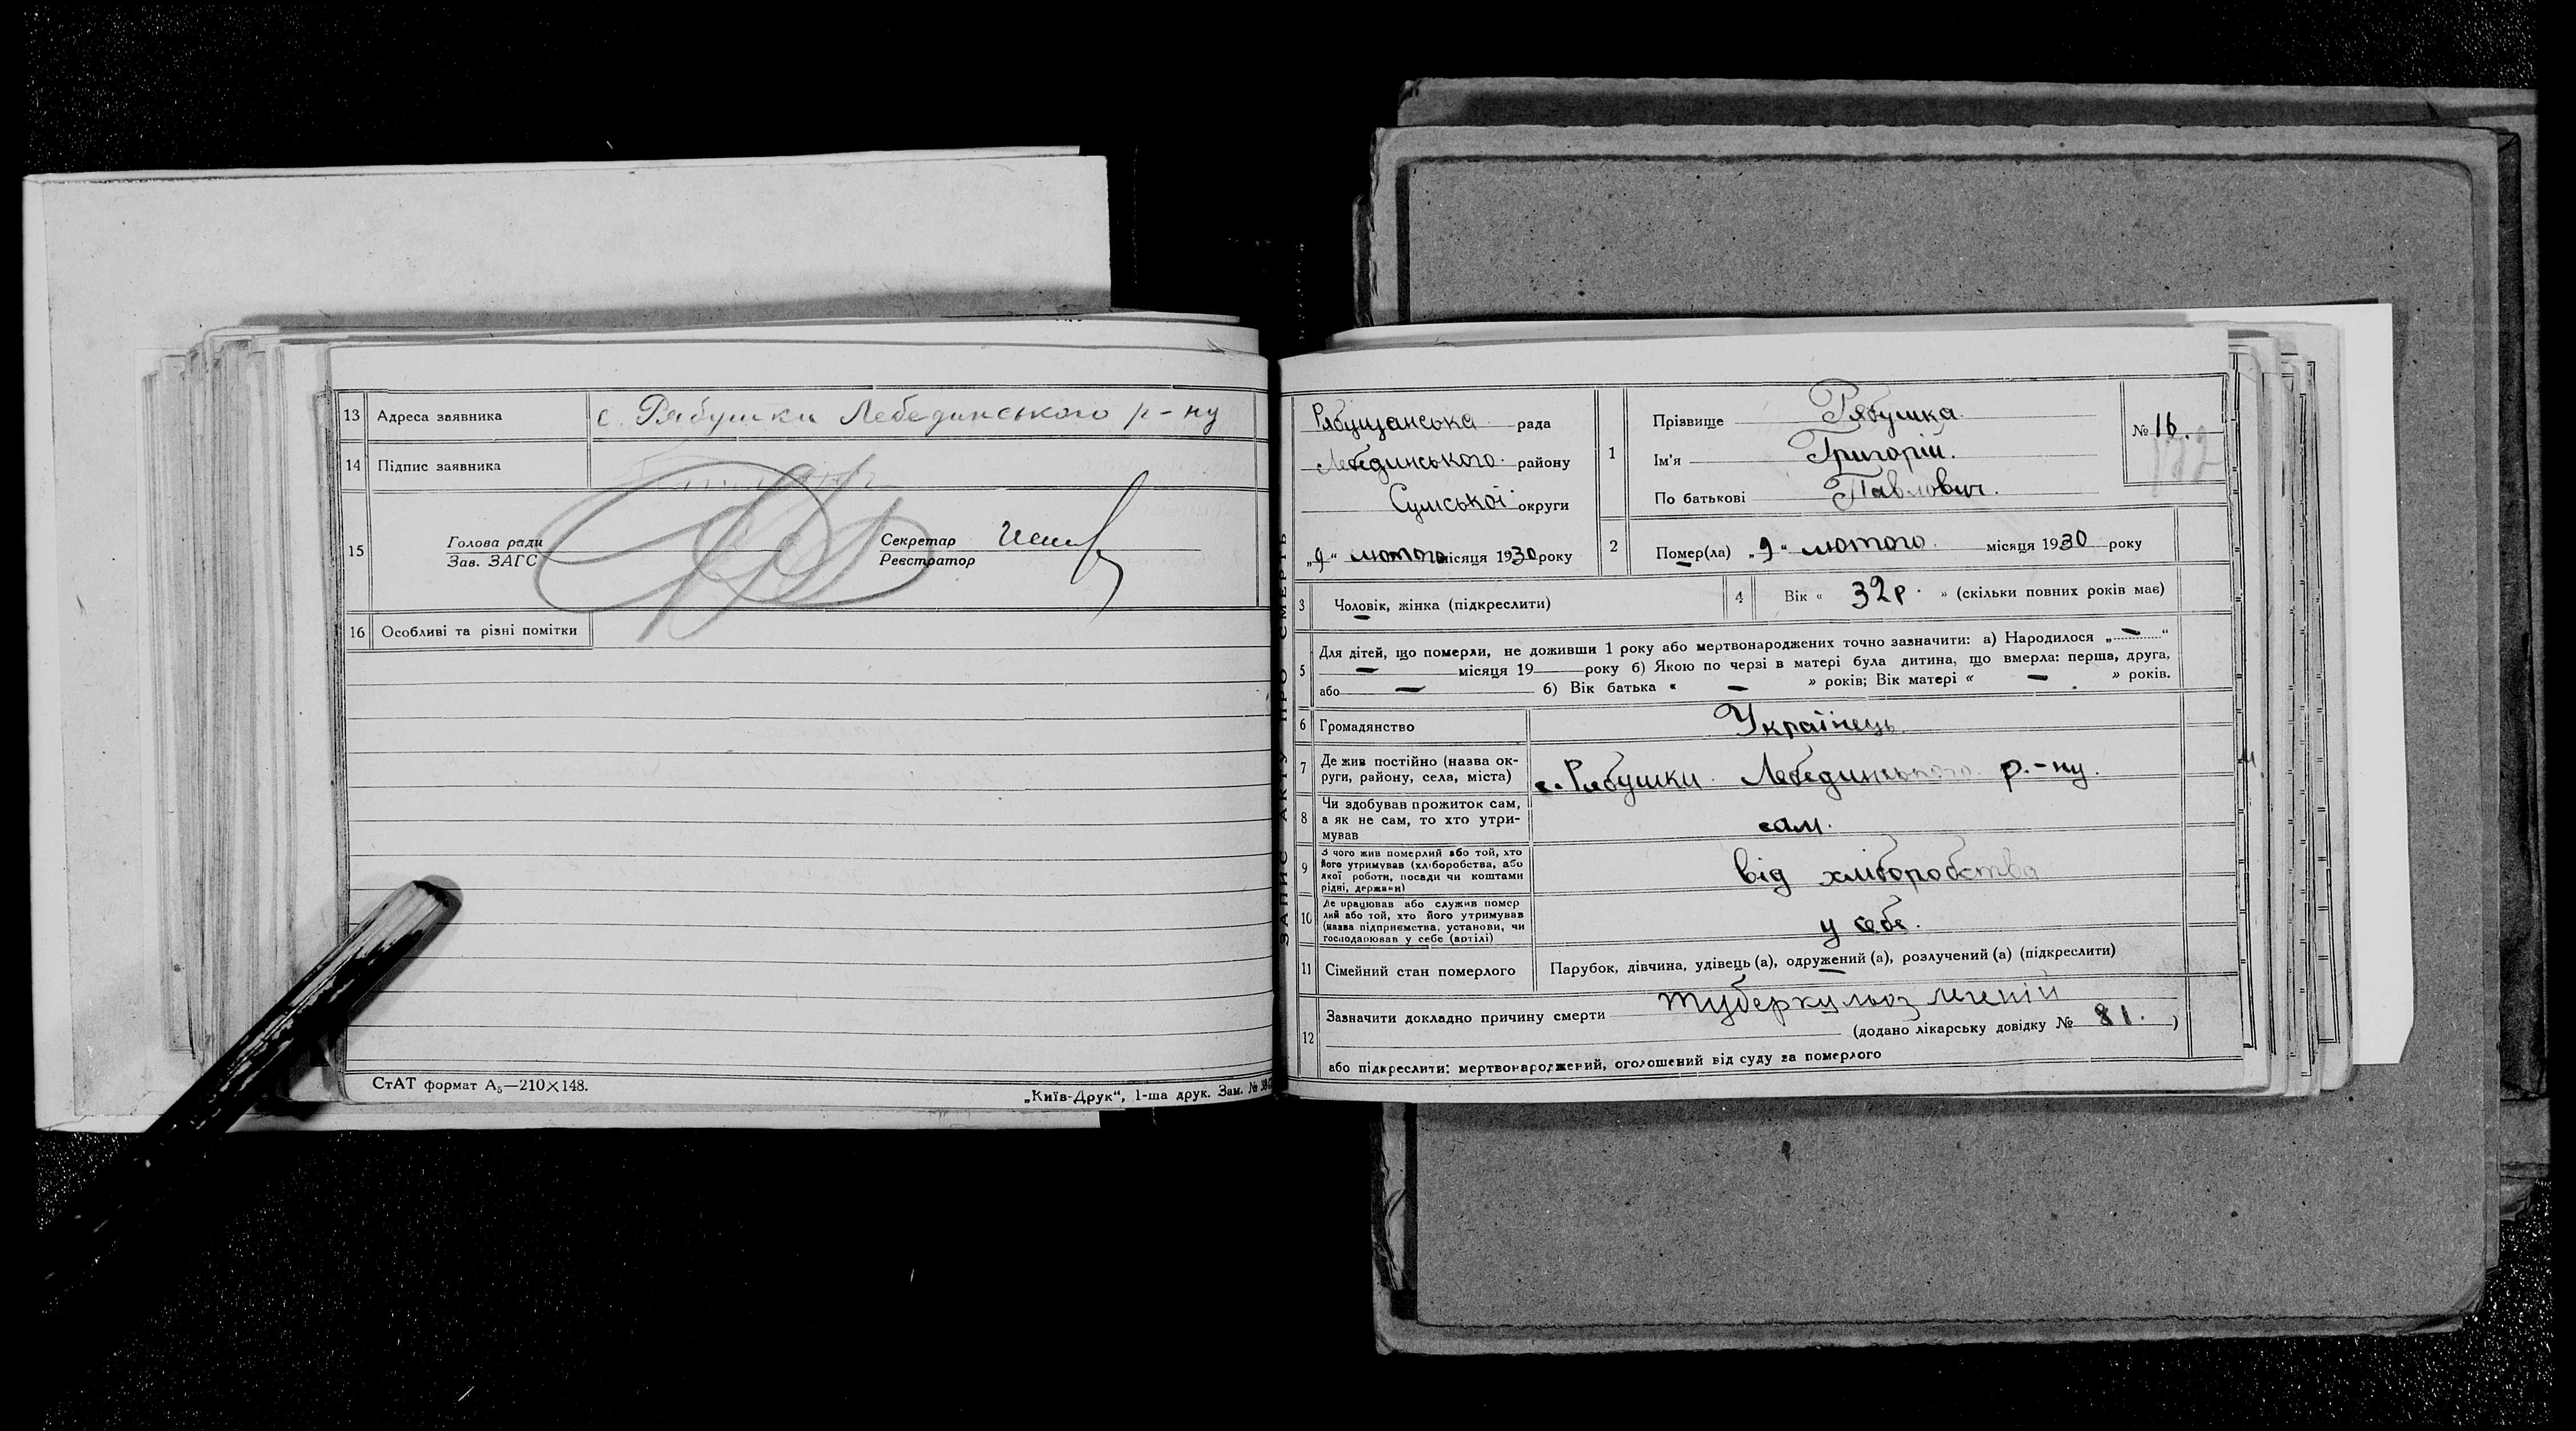 13 Адреса заявника с. Рябушки Лебединського р-ну
14 Підпис заявника
15 Голова ради
Зав. ЗАГС
Секретар
Реєстратор
16 Особливі та різні помітки
СтАТ формат А5—210×148.
„Київ-Друк“, 1-ша друк. Зам. №
ЗАПИС АКТУ ПРО СМЕРТЬ
Рябущанська рада
Лебединського району
Сумської округи
„9“ лютого місяця 1930 року
1 Прізвище Рябушка
Ім'я Григорій.
По батькові Павлович.
№ 16.
2 Помер(ла) „9“ лютого. місяця 1930 року
3 Чоловік, жінка (підкреслити)
4 Вік « 32 р. » (скільки повних років має)
5 Для дітей, що померли, не доживши 1 року або мертвонароджених точно зазначити: а) Народилося „ — “
— місяця 19 року б) Якою по черзі в матері була дитина, що вмерла: перша, друга,
або — б) Вік батька « — » років; Вік матері « — » років.
6 Громадянство Українець.
7 Де жив постійно (назва ок-
руги, району, села, міста) с. Рябушки Лебединського р.-ну.
8 Чи здобував прожиток сам,
а як не сам, то хто утри-
мував сам.
9 З чого жив померлий або той, хто
його утримував (хліборобства, або
якої роботи, посади чи коштами
рідні, держави) від хліборобства
10 Де працював або служив помер
лий або той, хто його утримував
(назва підприємства, установи, чи
господарював у себе (артілі) у себе.
11 Сімейний стан померлого Парубок, дівчина, удівець (а), одружений (а), розлучений (а) (підкреслити)
12 Зазначити докладно причину смерти туберкульоз легенів
(додано лікарську довідку № 81. )
або підкреслити: мертвонароджений, оголошений від суду за померлого